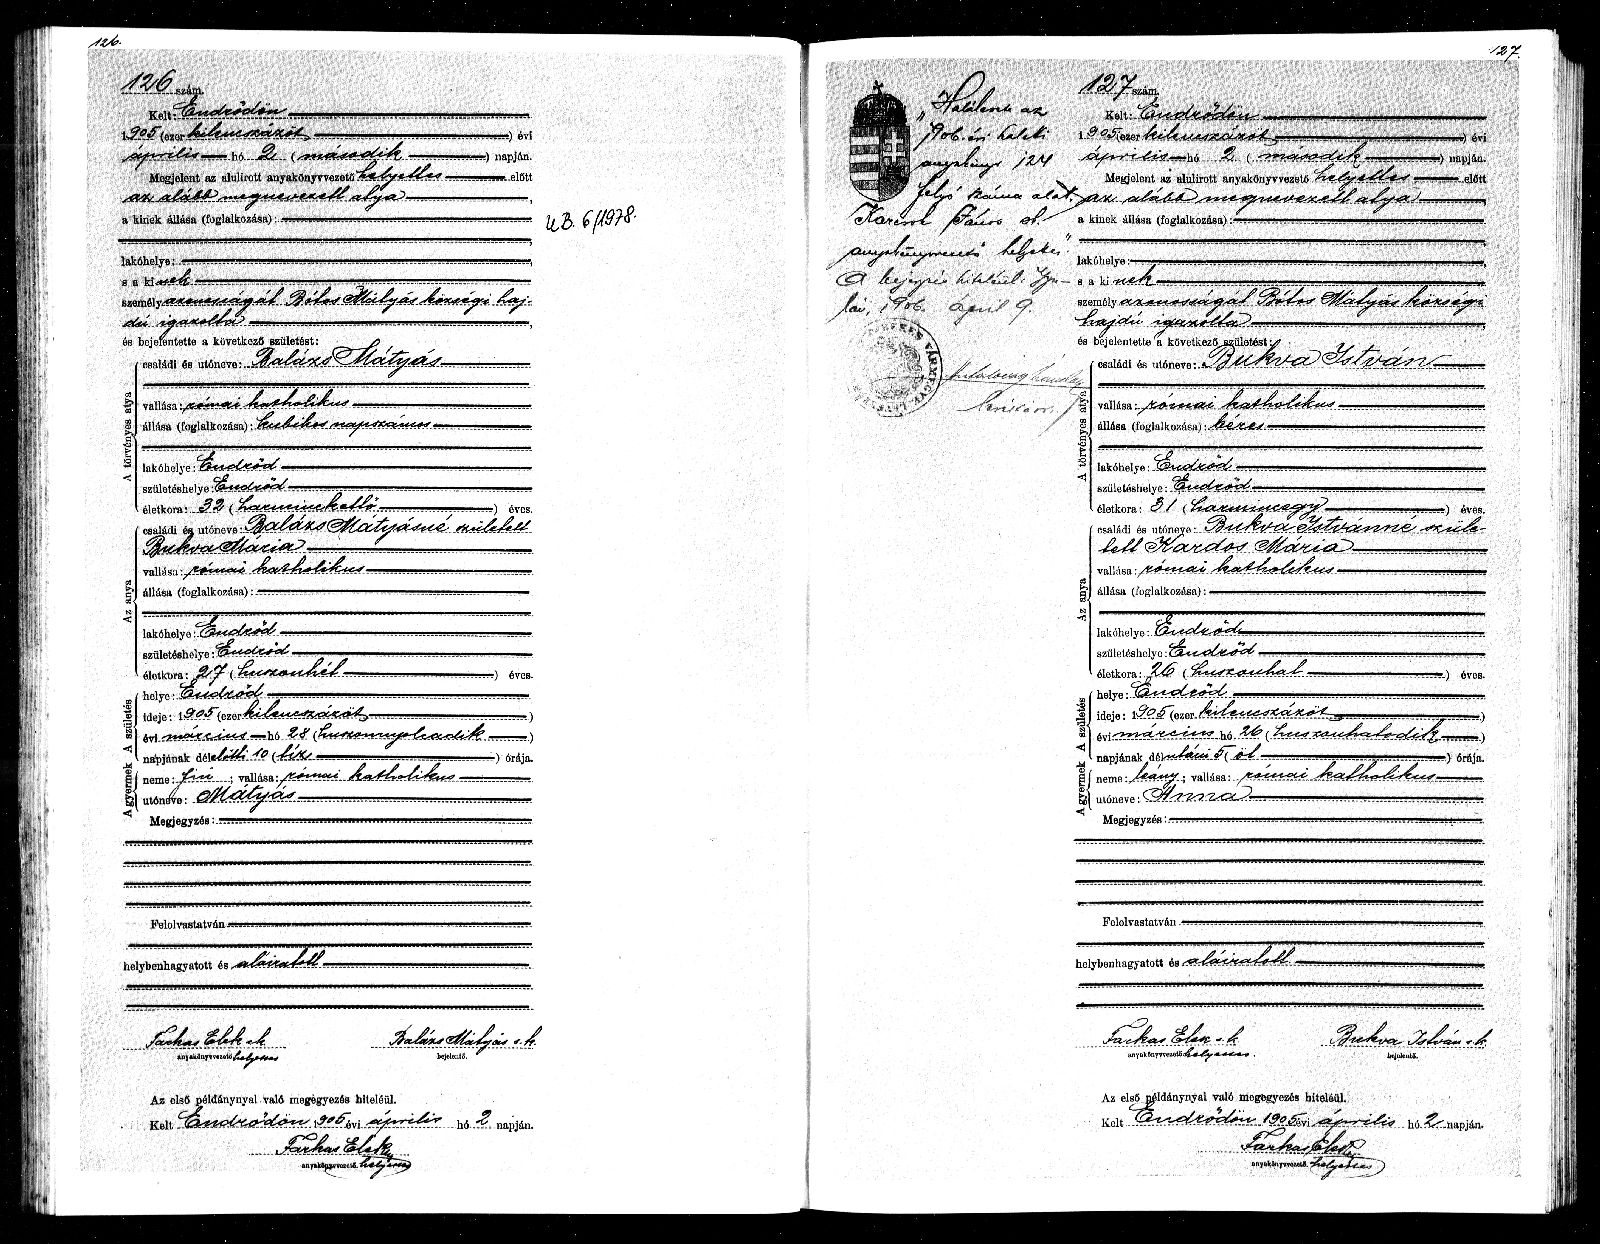 126.
126 szám.
Kelt: Endrődön
1905 (ezer kilenczszázöt) évi
április hó 2. (második) napján.
Megjelent az alulirott anyakönyvvezető helyettes előtt
az alább megnevezett atya,
a kinek állása (foglalkozása):
lakóhelye:
s a kinek
személyazonosságát Bótos Mátyás községi haj-
dú igazolta,
és bejelentette a következő születést:
A törvényes atya
családi és utóneve: Balázs Mátyás
vallása: római katholikus
állása (foglalkozása): kubikos napszámos
lakóhelye: Endrőd
születéshelye: Endrőd
életkora: 32 (harminckettő) éves.
Az anya
családi és utóneve: Balázs Mátyásné született
Bukva Mária
vallása: római katholikus
állása (foglalkozása):
lakóhelye: Endrőd
születéshelye: Endrőd
életkora: 27 (huszonhét) éves.
A születés
helye: Endrőd
ideje: 1905 (ezer kilenczszázöt)
évi március hó 28 (huszonnyolcadik)
napjának délelőtti 10 (tíz) órája.
A gyermek
neme: fiú; vallása: római katholikus
utóneve: Mátyás
Megjegyzés:
Felolvastatván
helybenhagyatott és aláiratott
Farkas Elek s.k. Balázs Mátyás s.k.
anyakönyvvezető helyettes bejelentő.
Az első példánynyal való megegyezés hiteléül.
Kelt Endrődön 1905 évi április hó 2 napján.
Farkas Elek
anyakönyvvezető. helyettes
U.B. 6/1978.
127.
az
1906. évi
124
folyó száma alatt.
János s.k.
anyakönyvvezető helyettes."
A bejegyzés hiteléül. Gyu-
lán, 1906. April 9.
127 szám.
Kelt: Endrődön
1905 (ezer kilenczszázöt) évi
április hó 2. (második) napján.
Megjelent az alulirott anyakönyvvezető helyettes előtt
az alább megnevezett atya
a kinek állása (foglalkozása):
lakóhelye:
s a kinek
személyazonosságát Bótos Mátyás községi
hajdú igazolta
és bejelentette a következő születést:
A törvényes atya
családi és utóneve: Bukva István
vallása: római katholikus
állása (foglalkozása): béres
lakóhelye: Endrőd
születéshelye: Endrőd
életkora: 31 (harmincegy) éves.
Az anya
családi és utóneve: Bukva Istvánné szüle-
tett Kardos Mária
vallása: római katholikus
állása (foglalkozása):
lakóhelye: Endrőd
születéshelye: Endrőd
életkora: 26 (huszonhat) éves.
A születés
helye: Endrőd
ideje: 1905 (ezer kilenczszázöt)
évi március hó 26 (huszonhatodik)
napjának délutáni 5 (öt) órája.
A gyermek
neme: leány; vallása: római katholikus
utóneve: Anna
Megjegyzés:
Felolvastatván
helybenhagyatott és aláiratott
Farkas Elek s.k. Bukva István s.k.
anyakönyvvezető helyettes. bejelentő.
Az első példánynyal való megegyezés hiteléül.
Kelt Endrődön 1905 évi április hó 2 napján.
Farkas Elek
anyakönyvvezető. helyettes